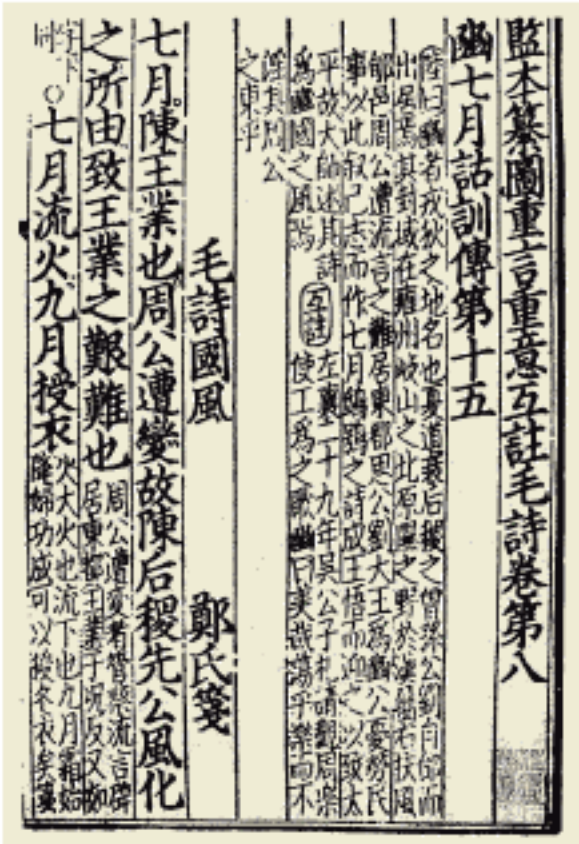 監本纂圖重言重意互註毛詩卷第八
豳七月詁訓傳第十五
陸曰豳者戎狄之地名也夏道衰后稷之曾孫公劉自邰而
出居焉其封域在雍州岐山之北原隰之野於漢屬右扶風
郇邑周公遭流言之難居東都思公劉大王為豳公憂勞民
事以此叙己志而作七月鴟鴞之詩成王悟而迎之以致太
平故大師述其詩
為豳國之風焉
互註
左襄二十九年吳公子札請觀周樂
使工為之歌豳曰美哉蕩乎樂而不
淫其周公
之東乎
毛詩國風
鄭氏箋
七月陳王業也周公遭變故陳后稷先公風化
之所由致王業之艱難也
周公遭變者管蔡流言辟
居東都王業于況反又如
字
○七月流火九月授衣
火大火也流下也九月霜始
降婦功成可以授冬衣矣箋